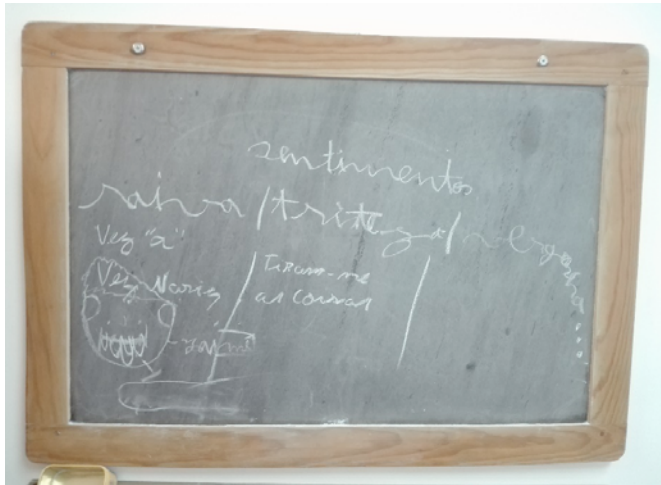 sentimentos
raiva / triteza / vergonha...
Vez "a"
Vez Nariz
Tiram-me
as coisas